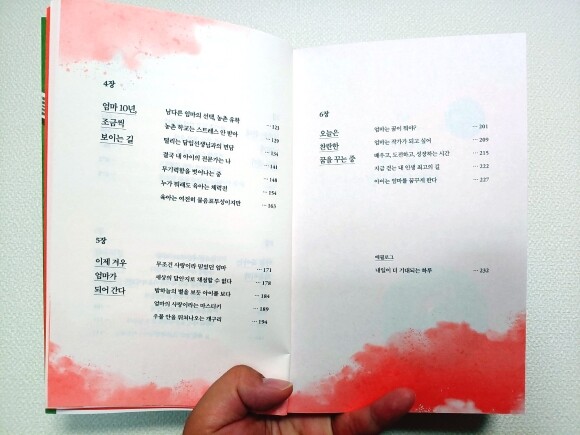 4장
엄마 10년,
조금씩
보이는 길
남다른 엄마의 선택, 농촌 유학 … 121
농촌 학교는 스트레스 안 받아 … 129
떨리는 담임선생님과의 면담 … 134
결국 내 아이의 전문가는 나 … 141
무기력함을 벗어나는 중 … 148
누가 뭐래도 육아는 체력전 … 154
육아는 여전히 물음표투성이지만 … 163
5장
이제 겨우
엄마가
되어 간다
무조건 사랑이라 믿었던 엄마 … 171
세상의 답안지로 채점할 수 없다 … 178
밤하늘의 별을 보듯 아이를 보다 … 184
엄마의 사랑이라는 마스터키 … 189
우물 안을 뛰쳐나오는 개구리 … 194
6장
오늘은
찬란한
꿈을 꾸는 중
엄마는 꿈이 뭐야? … 201
엄마는 작가가 되고 싶어 … 209
배우고, 도전하고, 성장하는 시간 … 215
지금 걷는 내 인생 최고의 길 … 222
아이는 엄마를 꿈꾸게 한다 … 227
에필로그
내일이 더 기대되는 하루 … 232